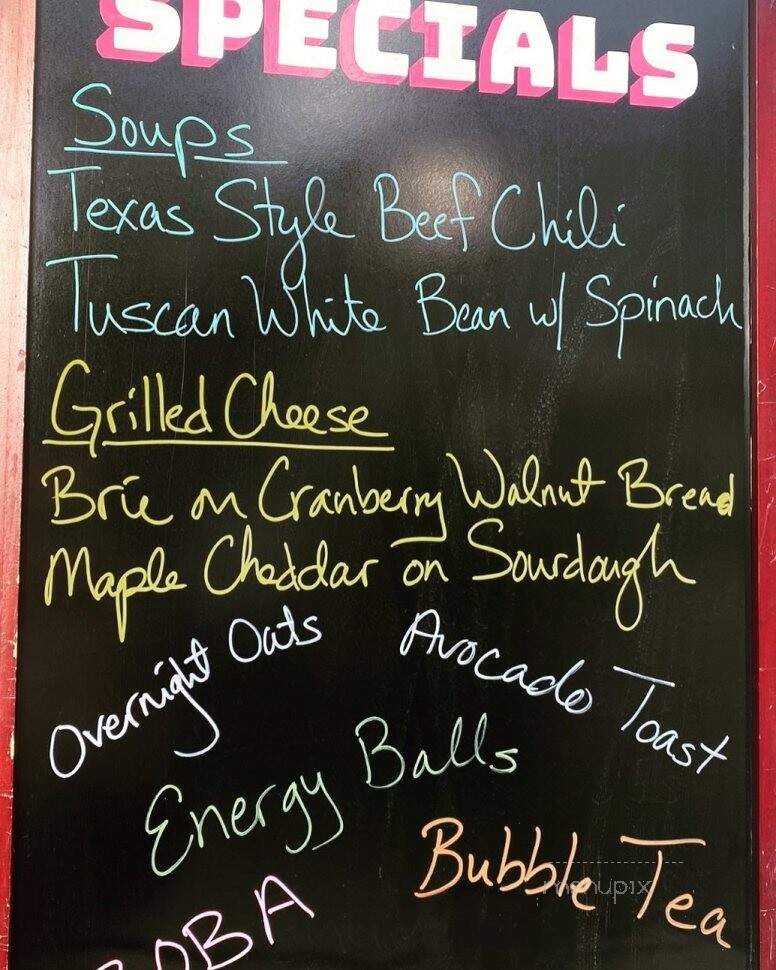 SPECIALS
Soups
Texas Style Beef Chili
Tuscan White Bean w/ Spinach
Grilled Cheese
Brie on Cranberry Walnut Bread
Maple Cheddar on Sourdough
Overnight Oats
Avocado Toast
Energy Balls
Bubble Tea
menupix
BOBA